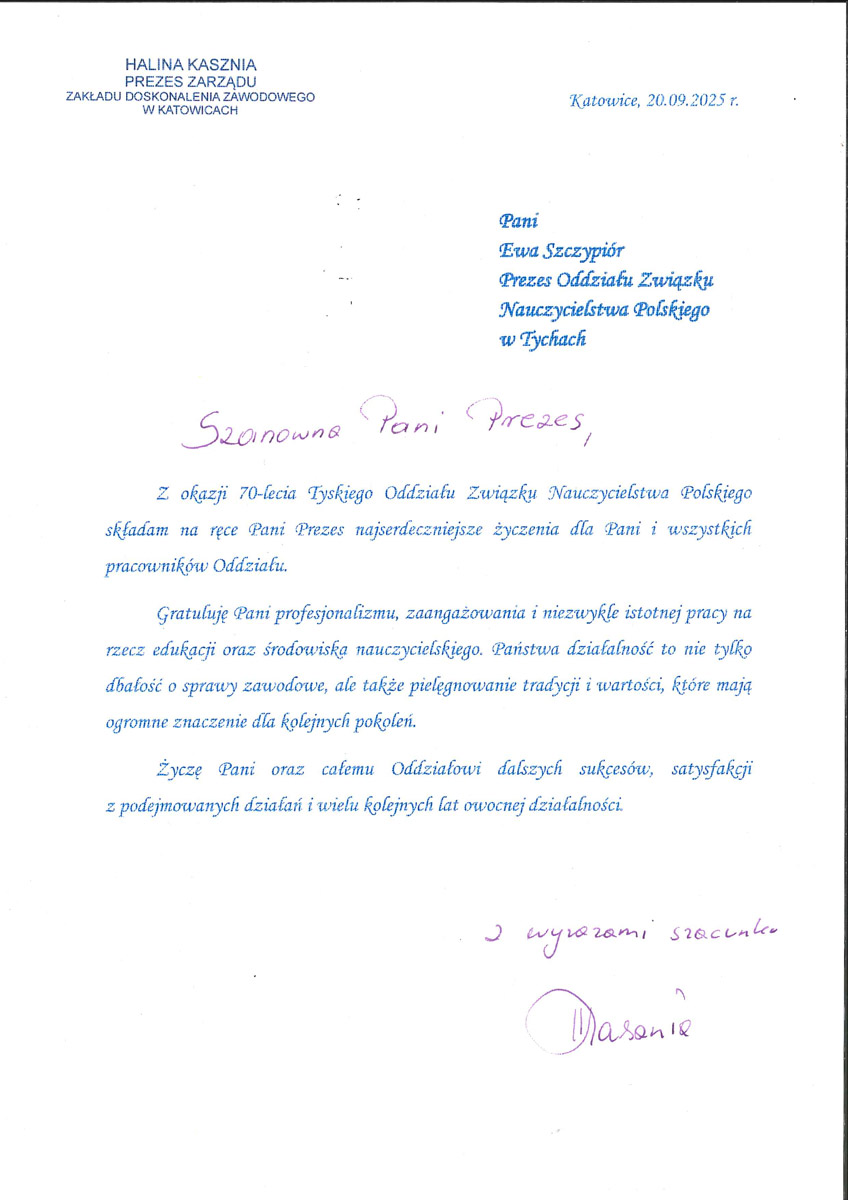 HALINA KASZNIA
PREZES ZARZĄDU
ZAKŁADU DOSKONALENIA ZAWODOWEGO
W KATOWICACH
Katowice, 20.09.2025 r.
Pani
Ewa Szczypiór
Prezes Oddziału Związku
Nauczycielstwa Polskiego
w Tychach
Szanowna Pani Prezes,
Z okazji 70-lecia Tyskiego Oddziału Związku Nauczycielstwa Polskiego
składam na ręce Pani Prezes najserdeczniejsze życzenia dla Pani i wszystkich
pracowników Oddziału.
Gratuluję Pani profesjonalizmu, zaangażowania i niezwykle istotnej pracy na
rzecz edukacji oraz środowiska nauczycielskiego. Państwa działalność to nie tylko
dbałość o sprawy zawodowe, ale także pielęgnowanie tradycji i wartości, które mają
ogromne znaczenie dla kolejnych pokoleń.
Życzę Pani oraz całemu Oddziałowi dalszych sukcesów, satysfakcji
z podejmowanych działań i wielu kolejnych lat owocnej działalności.
z wyrazami szacunku